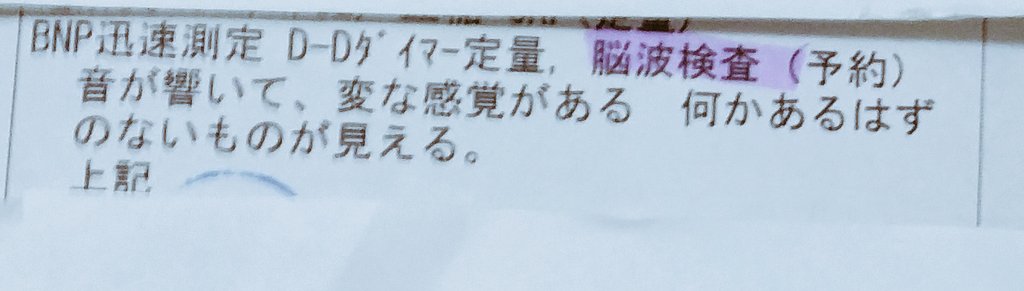 BNP迅速測定 D-Dﾀﾞｲﾏｰ定量, 脳波検査 (予約)
音が響いて、変な感覚がある 何かあるはず
のないものが見える。
上記